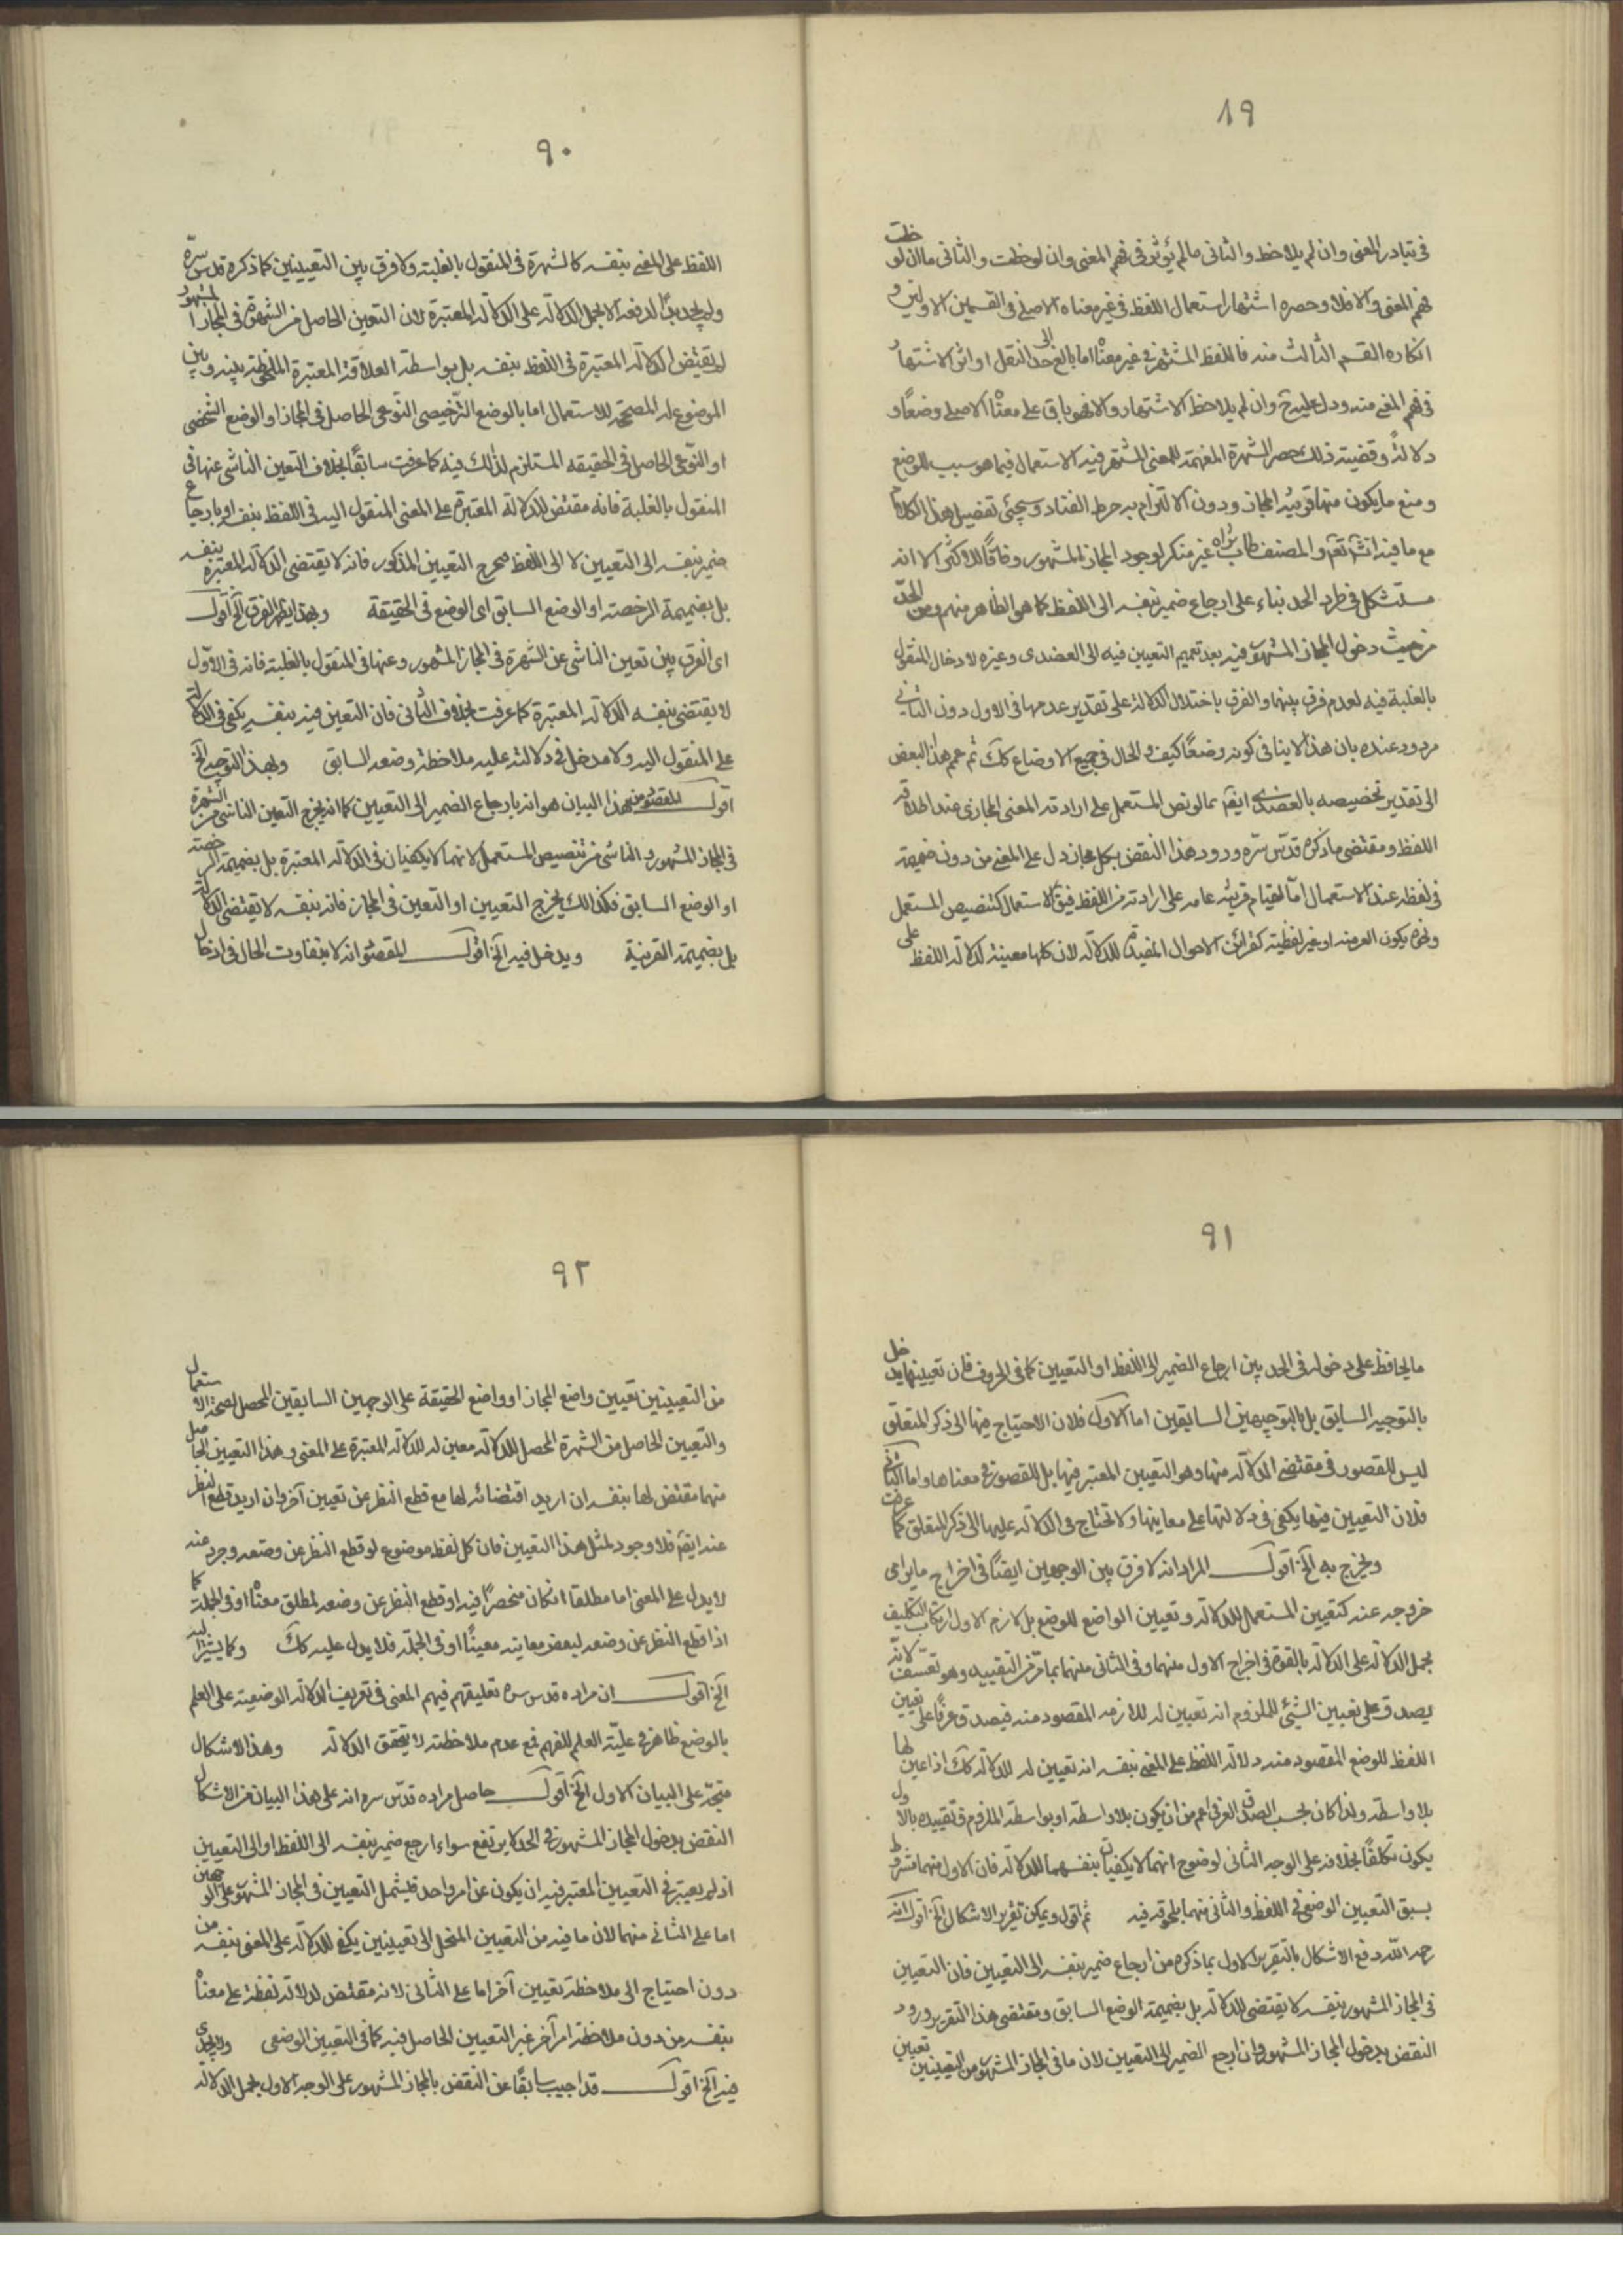 ٨٩
فى تبادر المعنى وان لم يلاحظ والثانى مالم يؤثر فى فهم المعنى وان لوحظت والثانى ماان لوحظت
فهم المعنى والا فلا وحصره اشتهار استعمال اللفظ فى غير معناه الاصلى فى القسمين الاولين و
انكاره القسم الثالث منه فاللفظ المشتهر فى غير معناه اما بالغ الى حد النقل او اثر الاشتهار
فى فهم المعنى منه ودل عليه وان لم يلاحظ الاشتهار والا فهو باق على معناه الاصلى وضعًا و
دلالةً وقضية ذلك حصر الشهرة المفهمة للمعنى المشتهر فيه الاستعمال فيما هو سبب للوضع
ومنع ما يكون منها قرينة المجاز ودون الالتزام به خرط القتاد وسيجئى تفصيل هذا الكلام
مع ما فيه انشا تعا والمصنف طاب ثراه غير منكر لوجود المجاز المشهور وفاقًا للاكثر الا انه
مستشكل فى طرد الحد بناء على ارجاع ضمير بنفسه الى اللفظ كما هو الظاهر منهم ومن الحد
من حيث دخول المجاز المشهور فيه بعد تعميم التعيين فيه الى العضدى وغيره لادخال المنقول
بالغلبة فيه لعدم فرق بينهما والفرق باختلال الدلالة على تقدير عدمها فى الاول دون الثانى
مردود عنده بان هذا لاينافى كونه وضعًا كيف والحال فى جميع الاوضاع كك ثم عمم هذا البعض
الى تقدير تخصيصه بالعضدى ايضا بما لو نص المستعمل على ارادته المعنى المجازى عند اطلاقه
اللفظ ومقتضى ماذكره قدس سره ورود هذا النقض بكل مجاز دل على المعنى من دون ضميمة
فى لفظه عند الاستعمال اما لقيام قرينة عامه على ارادته من اللفظ قبل الاستعمال كتنصيص المستعمل
يكون او غير لفظية كقرائن الاحوال المفيدة للدلالة لان كلها معينة لدلالة اللفظ على
٩٠
اللفظ على المعنى بنفسه كالشهرة فى المنقول بالغلبة ولا فرق بين التعيينين كما ذكره قدس سره
ولم يجد بدًا لدفعه الا بحمل الدلالة على الدلالة المعتبرة لان التعين الحاصل من الشهرة فى المجاز المشهور
لم يقتض الدلالة المعتبرة فى اللفظ بنفسه بل بواسطة العلاقة المعتبرة الملحوظة بينه وبين
الموضوع له المصححة للاستعمال اما بالوضع الترخيصى النوعى الحاصل فى المجاز او الوضع الشخصى
او النوعى الحاصل فى الحقيقه المستلزم لذلك فيه كما عرفت سابقًا بخلاف التعين الناشى عنها فى
المنقول بالغلبة فانه مقتض للدلالة المعتبرة على المعنى المنقول اليه فى اللفظ بنفسه او بارجاع
ضمير بنفسه الى التعيين لا الى اللفظ فيخرج التعيين المذكور فانه لا يقتضى الدلالة المعتبرة بنفسه
بل بضميمة الرخصة او الوضع السابق اى الوضع فى الحقيقة وبهذا يظهر الفرق الخ اقول
اى الفرق بين تعين الناشى عن الشهرة فى المجاز المشهور وعنها فى المنقول بالغلبة فانه فى الاول
لا يقتضى بنفسه الدلالة المعتبرة كما عرفت بخلاف الثانى فان التعين فيه بنفسه يكفى فى الدلالة
على المنقول اليه ولا مدخل فى دلالته عليه ملاحظة وضعه السابق وبهذا التوجيه الخ
اقول المقصود من هذا البيان هو انه بارجاع الضمير الى التعيين كما انه يخرج التعين الناشى من الشهرة
فى المجاز المشهور والناشى من تنصيص المستعمل لانهما لا يكفيان فى الدلالة المعتبرة بل بضميمة الرخصة
او الوضع السابق فكذالك يخرج التعيين او التعين فى المجاز فانه بنفسه لا يقتضى الدلالة
بل بضميمة القرينة ويدخل فيه الخ اقول المقصود انه لا يتفاوت الحال فى ادخال
٩١
مايحافظ على دخوله فى الحد بين ارجاع الضمير الى اللفظ او التعيين كما فى الحروف فان تعيينها يدخل
بالتوجيه السابق بل بالتوجيهين السابقين اما الاول فلان الاحتياج فيها الى ذكر المتعلق
ليس للقصور فى مقتضى الدلالة منها وهو التعيين المعتبر فيها بل للقصور فى معناها واما الثانى
فلان التعيين فيها يكفى فى دلالتها على معانيها ولا تحتاج فى الدلالة عليها الى ذكر المتعلق كما عرفت
ويخرج به الخ اقول المراد انه لا فرق بين الوجهين ايضًا فى اخراج مايراعى
خروجه عنه كتعيين المستعمل للدلالة وتعيين الواضع للوضع بل لازم الاول ارتكاب التكليف
بحمل الدلالة على الدلالة بالقوة فى اخراج الاول منهما وفى الثانى منهما بما مر من التقييد وهو تعسف لانه
يصدق على تعيين الشيئ للملزوم انه تعيين له للازمه المقصود منه فيصدق عرفًا على تعيين
اللفظ للوضع المقصود منه دلالة اللفظ على المعنى بنفسه انه تعيين له للدلالة كك اذا عين لها
بلا واسطه ولذا كان بحسب الصدق العرفى اعم من ان يكون بلا واسطه او بواسطة الملزوم فتقييده بالاول
يكون تكلفًا بخلافه على الوجه الثانى لوضوح انهما لا يكفيان بنفسهما للدلالة فان الاول منهما مشروط
بسبق التعيين الوضعى فى اللفظ والثانى منهما بلحوقه فيه ثم اقول ويمكن تقرير الاشكال الخ اقول انه
رحمه الله دفع الاشكال بالتقرير الاول بما ذكره من ارجاع ضمير بنفسه الى التعيين فان التعيين
فى المجاز المشهور بنفسه لا يقتضى الدلالة بل بضميمة الوضع السابق ومقتضى هذا التقرير ورود
النقض بدخول المجاز المشهور وان ارجع الضمير الى التعيين لان ما فى المجاز المشهور من التعيينين تعيين
٩٢
من التعيينين تعيين واضع المجاز او واضع الحقيقة على الوجهين السابقين المحصل لصحة الاستعمال
والتعيين الحاصل من الشهرة المحصل للدلالة معين له للدلالة المعتبرة على المعنى وهذا التعيين الحاصل
منهما مقتض لها بنفسه ان اريد اقتضائه لها مع قطع النظر عن تعيين آخر وان اريد قطع النظر
عنه ايضا فلا وجود لمثل هذا التعيين فان كل لفظ موضوع لو قطع النظر عن وضعه وجرد عنه
لا يدل على المعنى اما مطلقا ان كان منحصرًا فيه او قطع النظر عن وضعه لمطلق معناه او فى الجملة كما
اذا قطع النظر عن وضعه لبعض معانيه معينًا او فى الجملة فلا يدل عليه كك وكما يشير اليه
الخ اقول ان مراده قدس سره تعليقهم فهم المعنى فى تعريف الدلالة الوضعية على العلم
بالوضع ظاهر فى علية العلم للفهم فمع عدم ملاحظته لا يتحقق الدلالة وهذا الاشكال
متجه على البيان الاول الخ اقول حاصل مراده قدس سره انه على هذا البيان من الاشكال
النقض بدخول المجاز المشهور فى الحد لا يرتفع سواء ارجع ضمير بنفسه الى اللفظ او الى التعيين
اذ لم يعتبر فى التعيين المعتبر فيه ان يكون عن امر واحد فيشمل التعيين فى المجاز المشهور على الوجهين
اما على الثانى منهما لان ما فيه من التعيين المنحل الى تعيينين يكفى للدلالة على المعنى بنفسه من
دون احتياج الى ملاحظة تعيين آخر اما على الثانى لانه مقتض لدلالة لفظه على معناه
بنفسه من دون ملاحظة امر آخر غير التعيين الحاصل فيه كما فى التعيين الوضعى ولايجدى
فيه الخ اقول قد اجيب سابقًا عن النقض بالمجاز المشهور على الوجه الاول بحمل الدلالة